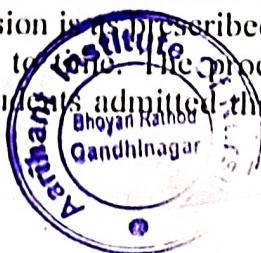 sion is as prescribed
to time. The proc
udents admitted thr
Aarihant Institute
Bhoyan Rathod
Gandhinagar